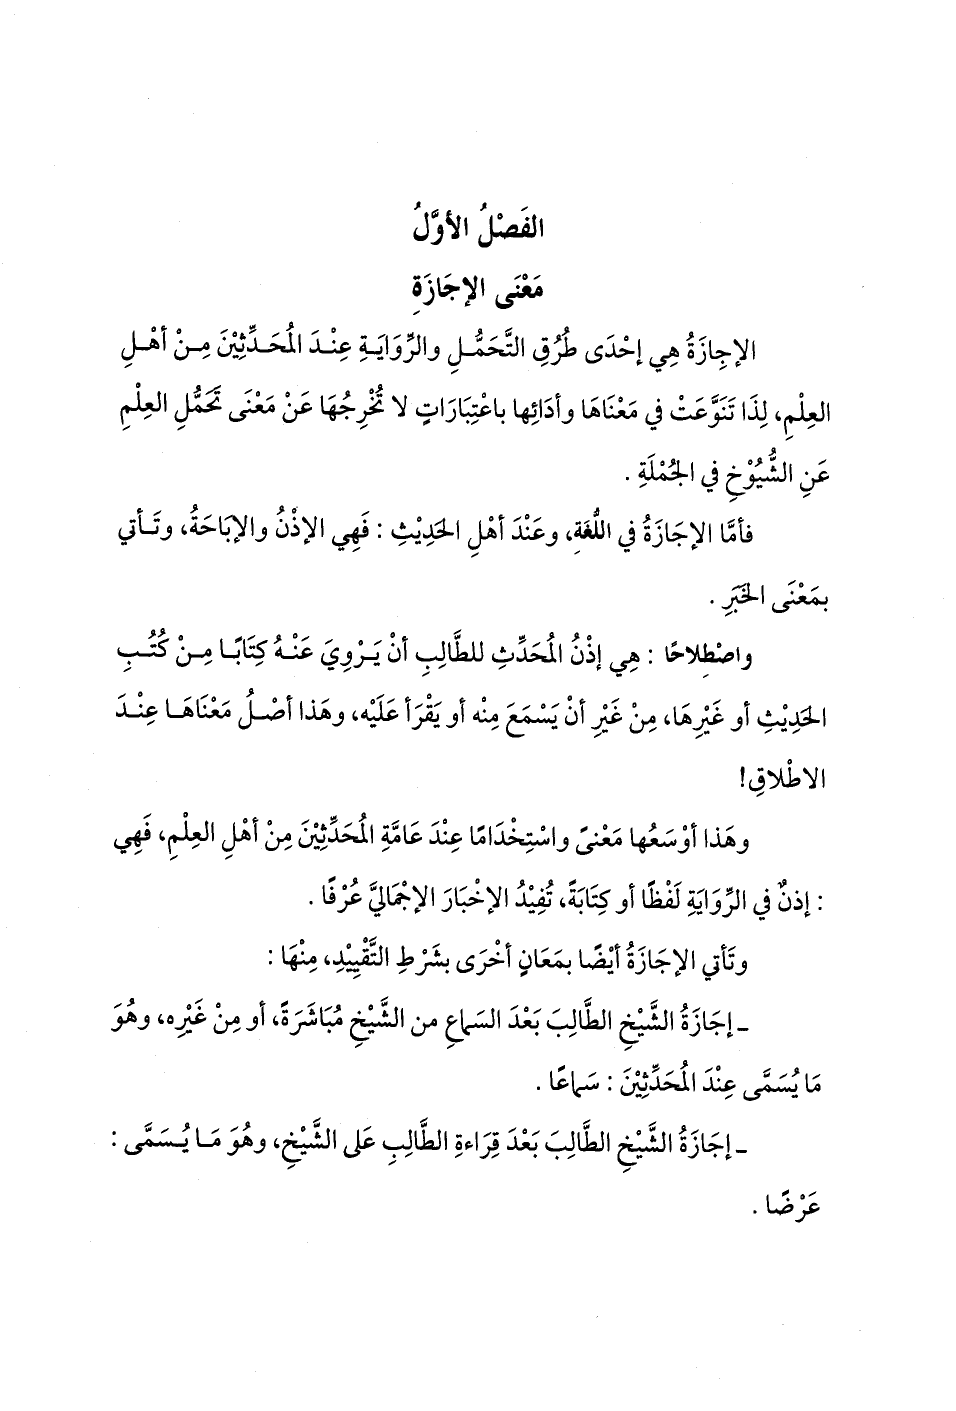 الفَصْلُ الأوَّلُ
مَعْنَى الإجَازَةِ
الإجِازَةُ هِي إحْدَى طُرُقِ التَّحَمُّلِ والرِّوَايَةِ عِنْدَ المُحَدِّثِيْنَ مِنْ أهْلِ
العِلْمِ، لِذَا تَنَوَّعَتْ في مَعْنَاهَا وأدَائِها باعْتِبَارَاتٍ لا تُخْرِجُهَا عَنْ مَعْنَى تَحَمُّلِ العِلْمِ
عَنِ الشُّيُوْخِ في الجُمْلَةِ .
فأمَّا الإجَازَةُ في اللُّغَةِ، وعَنْدَ أهْلِ الحَدِيْثِ : فَهِي الإذْنُ والإبَاحَةُ، وتَأتي
بمَعْنَى الخَبَرِ .
واصْطِلاحًا : هِي إذْنُ المُحَدِّثِ للطَّالِبِ أنْ يَرْوِيَ عَنْهُ كِتَابًا مِنْ كُتُبِ
الحَدِيْثِ أو غَيْرِهَا، مِنْ غَيْرِ أنْ يَسْمَعَ مِنْه أو يَقْرَأ عَلَيْه، وهَذا أصْلُ مَعْنَاهَا عِنْدَ
الاطْلاقِ!
وهَذا أوْسَعُها مَعْنىً واسْتِخْدَامًا عِنْدَ عَامَّةِ المُحَدِّثِيْنَ مِنْ أهْلِ العِلْمِ، فَهِي
: إذنٌ في الرِّوَايَةِ لَفْظًا أو كِتَابَةً، تُفِيْدُ الإخْبَارَ الإجْمَاليَّ عُرْفًا .
وتَأتي الإجَازَةُ أيْضًا بمَعَانٍ أخْرَى بشَرْطِ التَّقْيِيْدِ، مِنْهَا :
ـ إجَازَةُ الشَّيْخِ الطَّالِبَ بَعْدَ السَماعِ من الشَّيْخِ مُبَاشَرَةً، أو مِنْ غَيْرِه، وهُوَ
مَا يُسَمَّى عِنْدَ المُحَدِّثِيْنَ : سَماعًا .
ـ إجَازَةُ الشَّيْخِ الطَّالِبَ بَعْدَ قِرَاءةِ الطَّالِبِ عَلى الشَّيْخِ، وهُوَ مَا يُسَمَّى :
عَرْضًا .